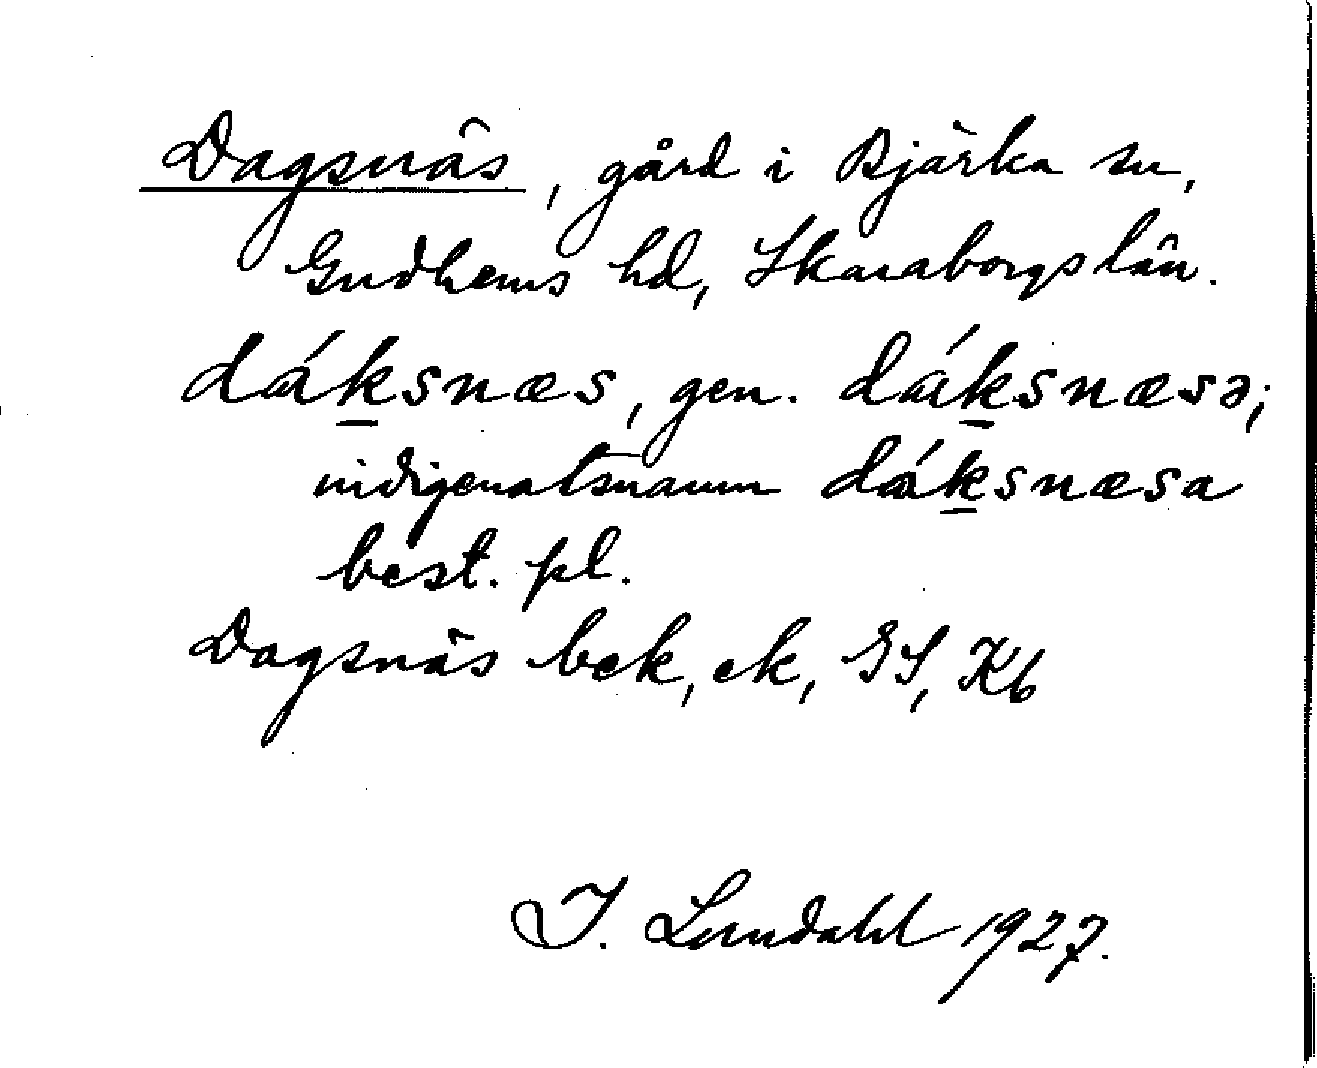 Dagsnäs, gård i Bjärka sn,
Gudhems hd, Skaraborgs län.
dáksnæs, gen. dáksnæsə;
indigenatsnamn dáksnæsa
best. pl.
Dagsnäs bek, ek, GS, Kb
I. Lundahl 1927.